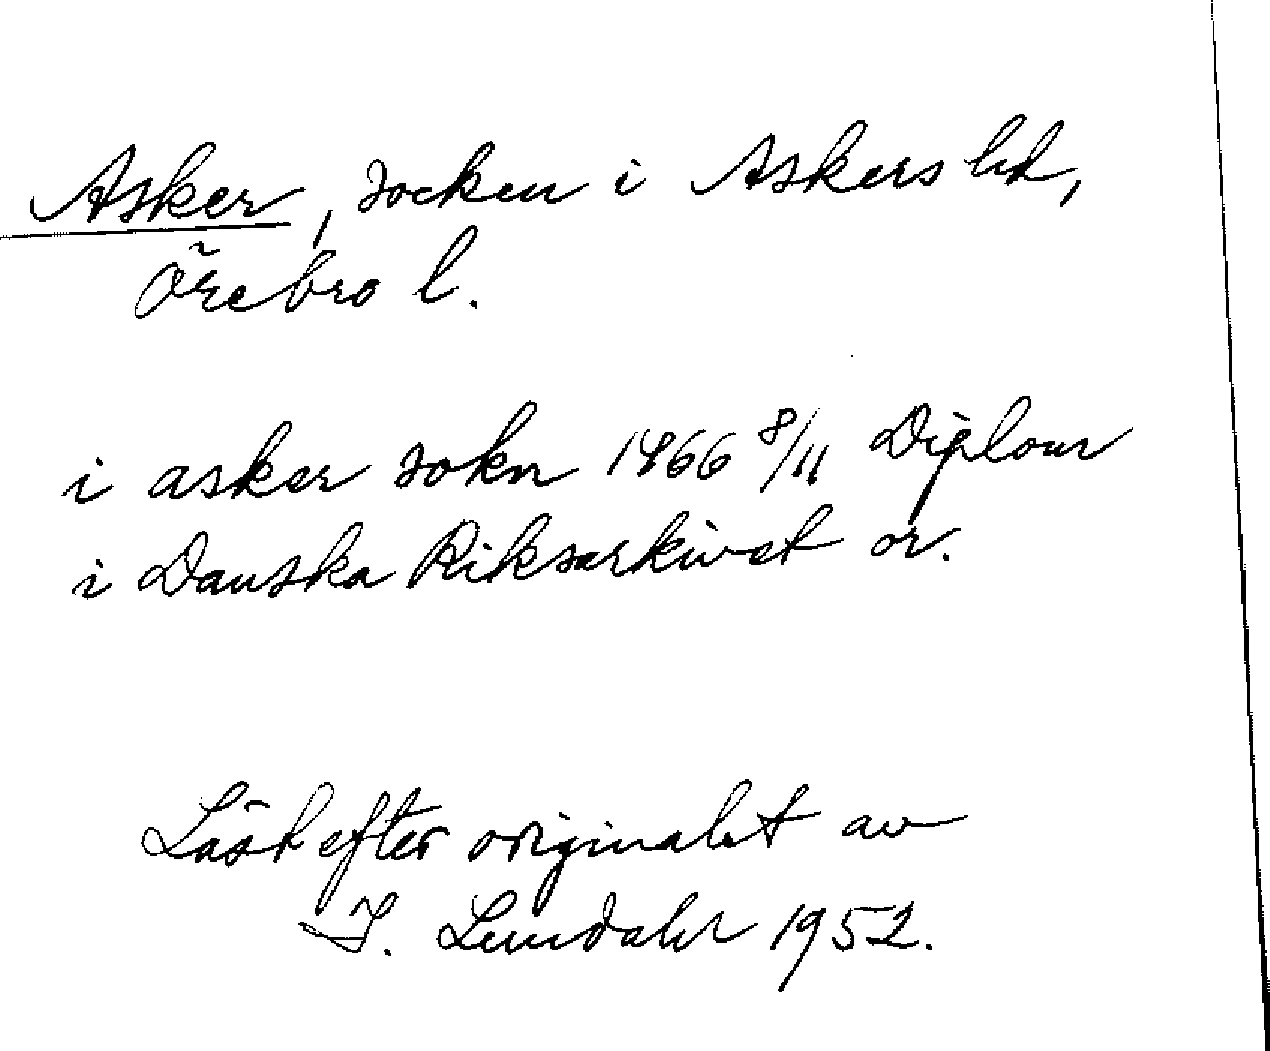 Asker, socken i Askers hd,
Örebro l.
i asker sokn 1466 8/11 Diplom
i Danska Riksarkivet or.
Läst efter originalet av
I. Lundahl 1952.